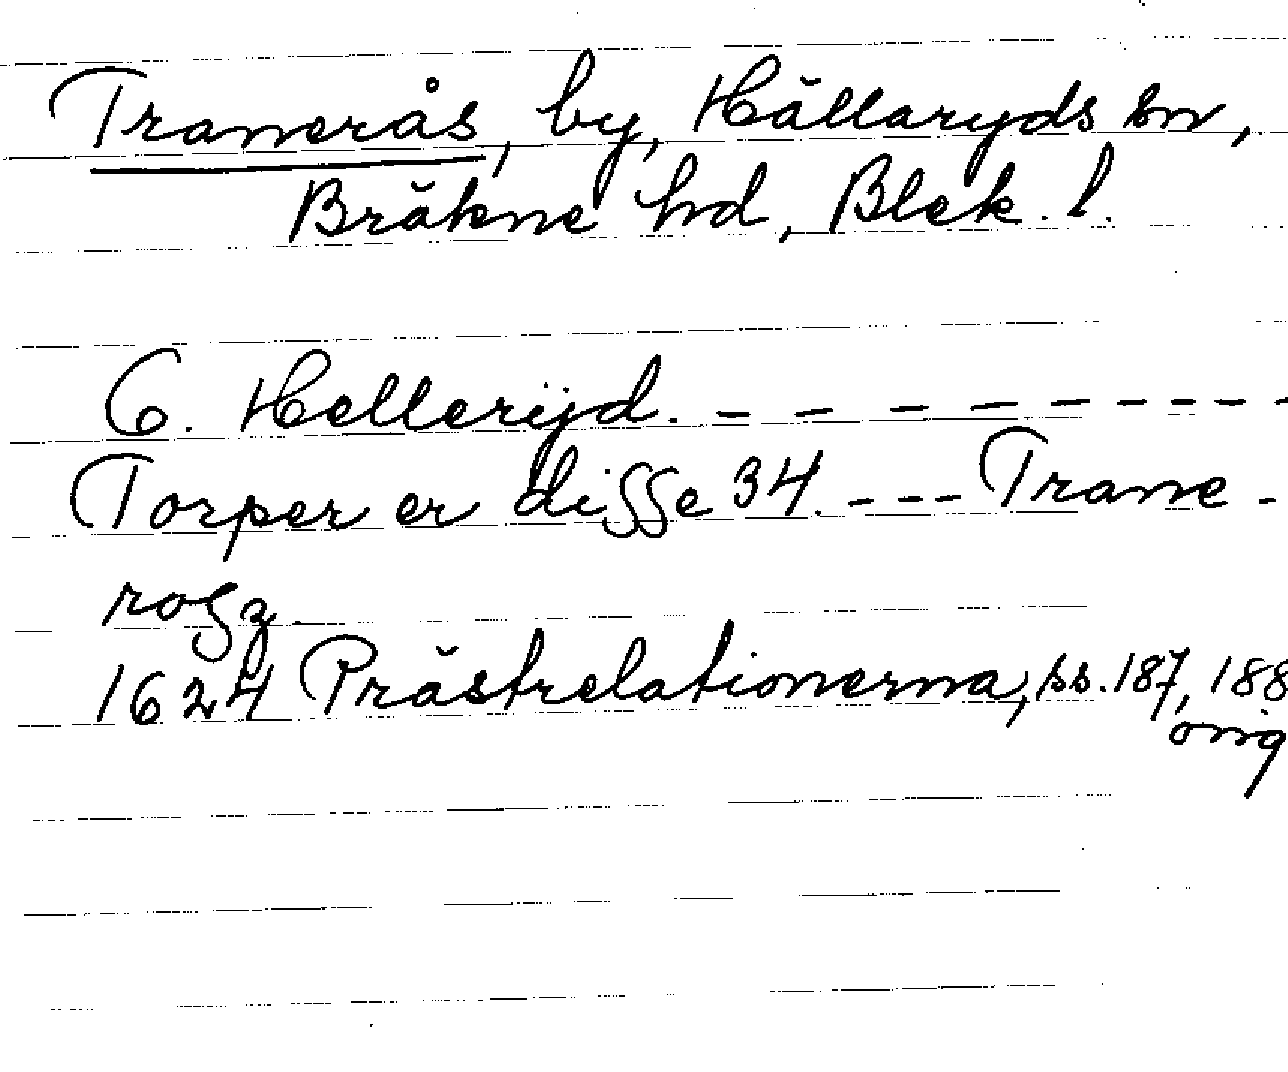 Tranerås, by, Hällaryds sn,
Bräkne hd, Blek. l.
6. Hellerÿd. - - - - - - - - -
Torper er disse 34. - - - Trane -
rosz.
1624 Prästrelationerna, ss. 187, 188
orig